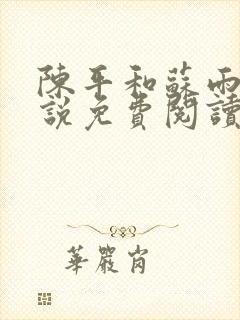 陳平和蘇雨
說免費閱讀
華嚴崗